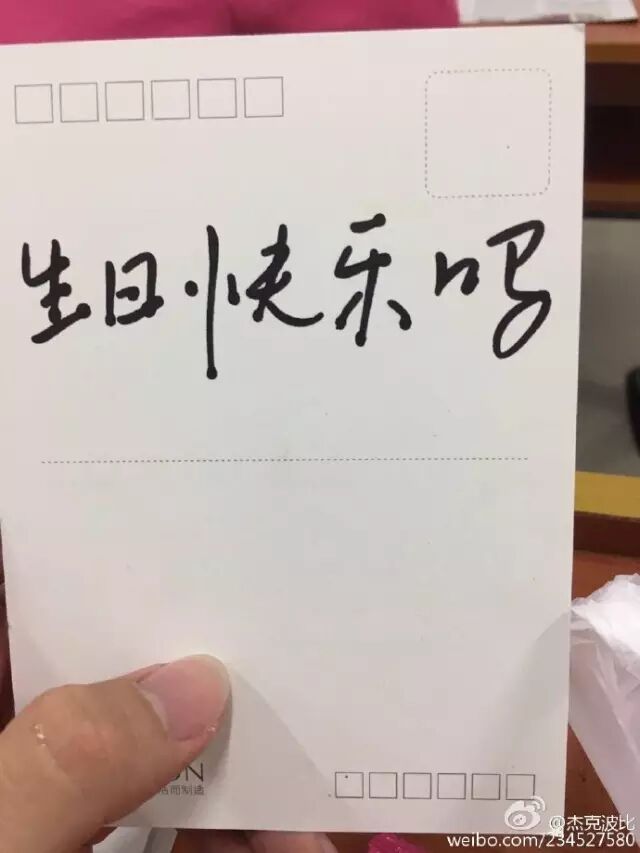 生日快乐吗
ON
活而制造
@杰克波比
weibo.com/234527580